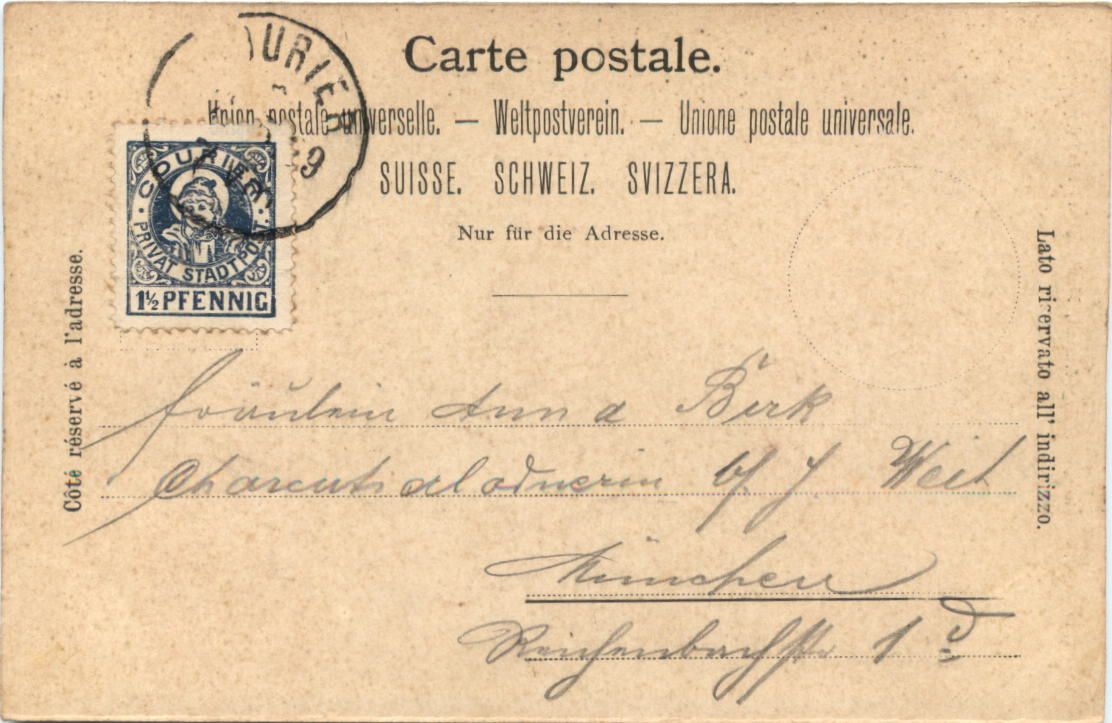 Carte postale.
Union postale universelle. — Weltpostverein. — Unione postale universale.
SUISSE. SCHWEIZ. SVIZZERA.
Nur für die Adresse.
COURIER
9
COURIER
PRIVAT STADTPOST
1½ PFENNIG
Côté réservé à l'adresse.
Lato riservato all' indirizzo.
Fräulein Anna Berk
b/ J. Weit
München
Reichenbachstr 1 d